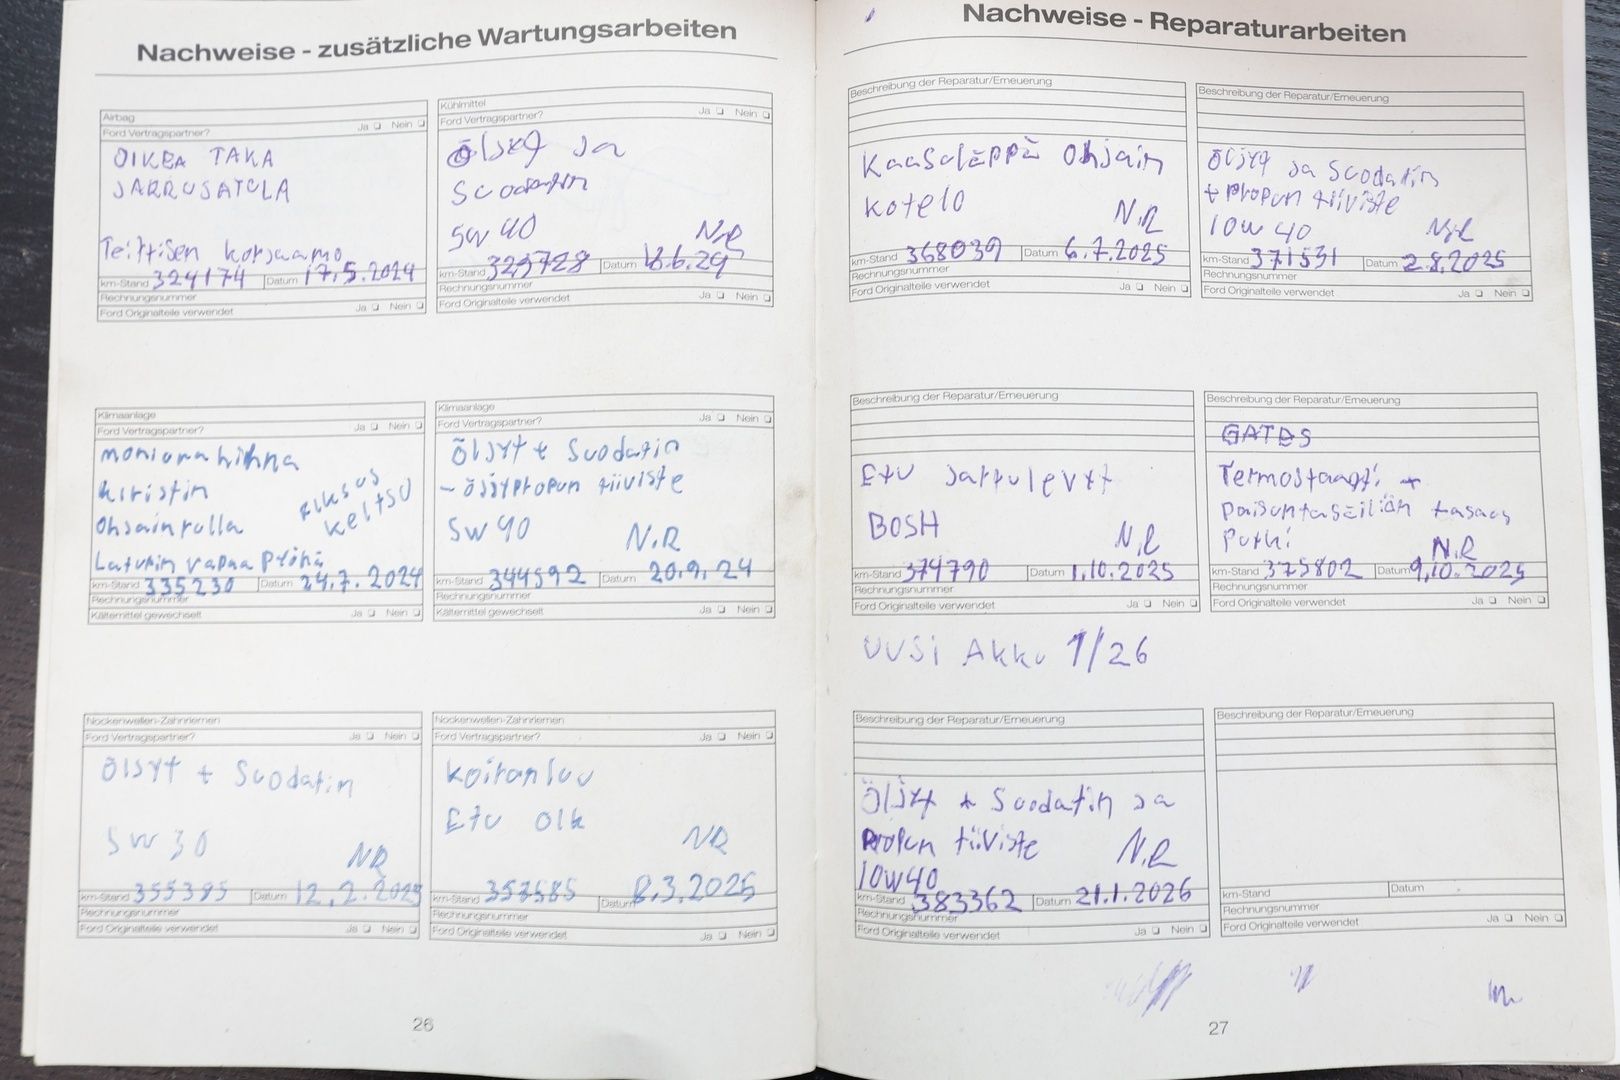 Nachweise - zusätzliche Wartungsarbeiten
Airbag
Ford Vertragspartner? Ja Nein
OIKEA TAKA
JARRUSATULA
Teittisen korjaamo
km-Stand 324174 Datum 17.5.2024
Rechnungsnummer
Ford Originalteile verwendet Ja Nein
Kühlmittel
Ford Vertragspartner? Ja Nein
Öljyt ja
Suodatin
5W 40 N.R
km-Stand 329728 Datum 18.6.24
Rechnungsnummer
Ford Originalteile verwendet Ja Nein
Klimaanlage
Ford Vertragspartner? Ja Nein
moniurahihna
kiristin
Ohjainrulla
Laturin vapaa pyörä
km-Stand 335230 Datum 24.7.2024
Rechnungsnummer
Kältemittel gewechselt Ja Nein
Klimaanlage
Ford Vertragspartner? Ja Nein
Öljyt + Suodatin
- öljypropun tiiviste
5W 40 N.R
km-Stand 344592 Datum 20.9.24
Rechnungsnummer
Kältemittel gewechselt Ja Nein
Nockenwellen-Zahnriemen
Ford Vertragspartner? Ja Nein
Öljyt + Suodatin
5W 30 NR
km-Stand 355385 Datum 12.2.2025
Rechnungsnummer
Ford Originalteile verwendet Ja Nein
Nockenwellen-Zahnriemen
Ford Vertragspartner? Ja Nein
Koiranluu
Etu oik
NR
km-Stand 357585 Datum 8.3.2025
Rechnungsnummer
Ford Originalteile verwendet Ja Nein
26
Nachweise - Reparaturarbeiten
Beschreibung der Reparatur/Erneuerung
Kaasuläppä ohjain
kotelo N.R
km-Stand 368039 Datum 6.7.2025
Rechnungsnummer
Ford Originalteile verwendet Ja Nein
Beschreibung der Reparatur/Erneuerung
Öljyt ja Suodatin
+ Propun tiiviste
10W 40 N.R
km-Stand 371531 Datum 2.8.2025
Rechnungsnummer
Ford Originalteile verwendet Ja Nein
Beschreibung der Reparatur/Erneuerung
Etu jarrulevyt
BOSH N.R
km-Stand 374790 Datum 1.10.2025
Rechnungsnummer
Ford Originalteile verwendet Ja Nein
Beschreibung der Reparatur/Erneuerung
GATES
Termostaatti +
paisuntasäiliön tasaus
Putki N.R
km-Stand 375802 Datum 9.10.2025
Rechnungsnummer
Ford Originalteile verwendet Ja Nein
UUSI Akku 1/26
Beschreibung der Reparatur/Erneuerung
Öljyt + Suodatin ja
Propun tiiviste N.R
10W40
km-Stand 383362 Datum 21.1.2026
Rechnungsnummer
Ford Originalteile verwendet Ja Nein
Beschreibung der Reparatur/Erneuerung
km-Stand Datum
Rechnungsnummer
Ford Originalteile verwendet Ja Nein
27